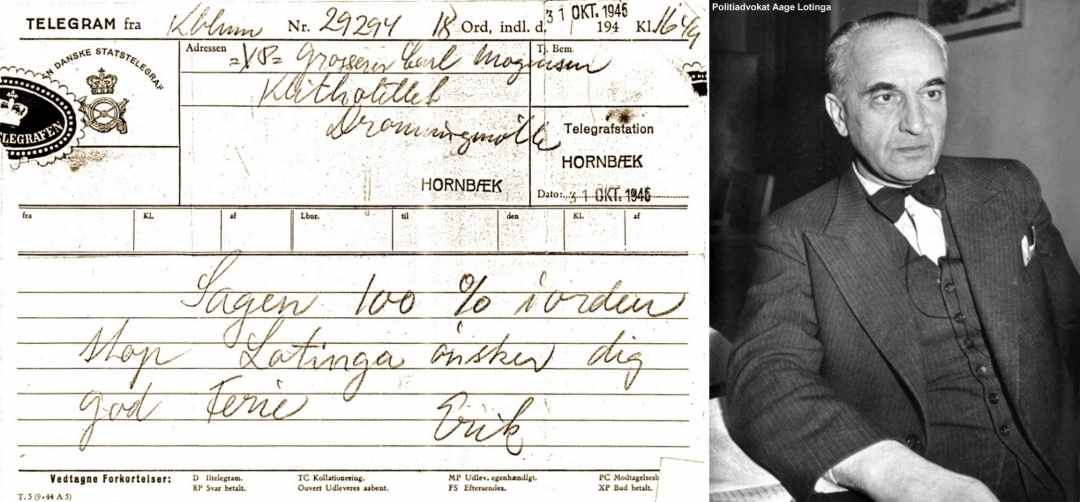 Politiadvokat Aage Lotinga
TELEGRAM fra Kbhvn Nr. 29294 18 Ord, indl. d. 31 OKT. 1945 194 Kl. 1644
N DANSKE STATSTELEGRAF
Adressen =XP= Grosserer Carl Mogensen
Tj. Bem.
Klithotellet
Dronningmølle
ELEGRAFEN
Telegrafstation
HORNBÆK
HORNBÆK
Dato: 31 OKT. 1945
fra Kl. af Lbnr. til den Kl. af
Sagen 100 % iorden
stop Lotinga ønsker dig
god Ferie Erik
Vedtagne Forkortelser:
D Iltelegram.
RP Svar betalt.
TC Kollationering.
Ouvert Udleveres aabent.
MP Udlev. egenhændigt.
FS Eftersendes.
PC Modtagelsesb
XP Bud betalt.
T. 5 (9-44 A 5)